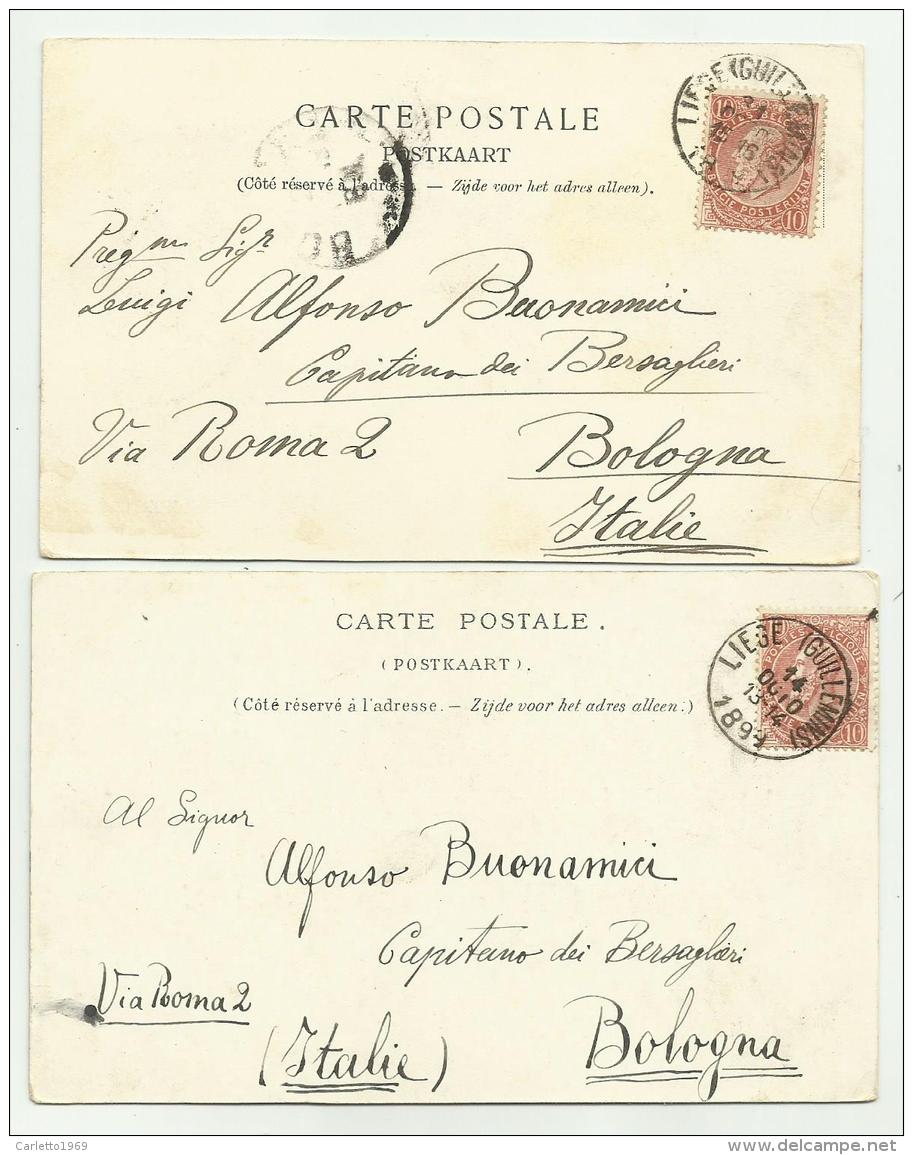 CARTE POSTALE
POSTKAART
(Côté réservé à l'adresse. — Zijde voor het adres alleen).
LIEGE (GUILLEMINS)
10 10
10
Preg.mo Sigr
Luigi Alfonso Buonamici
Capitano dei Bersaglieri
Via Roma 2 Bologna
Italie
CARTE POSTALE.
(POSTKAART).
(Côté réservé à l'adresse. — Zijde voor het adres alleen.)
LIEGE (GUILLEMINS)
14
13-14
10
Al Signor
Alfonso Buonamici
Capitano dei Bersaglieri
Via Roma 2
(Italie) Bologna
Carletto1969
www.delcampe.net